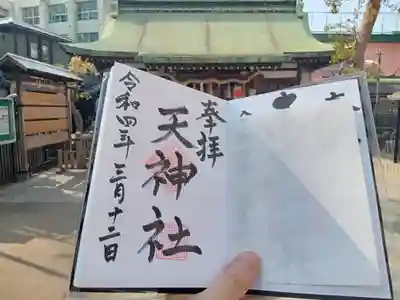 奉拝
天神社
令和四年三月十二日